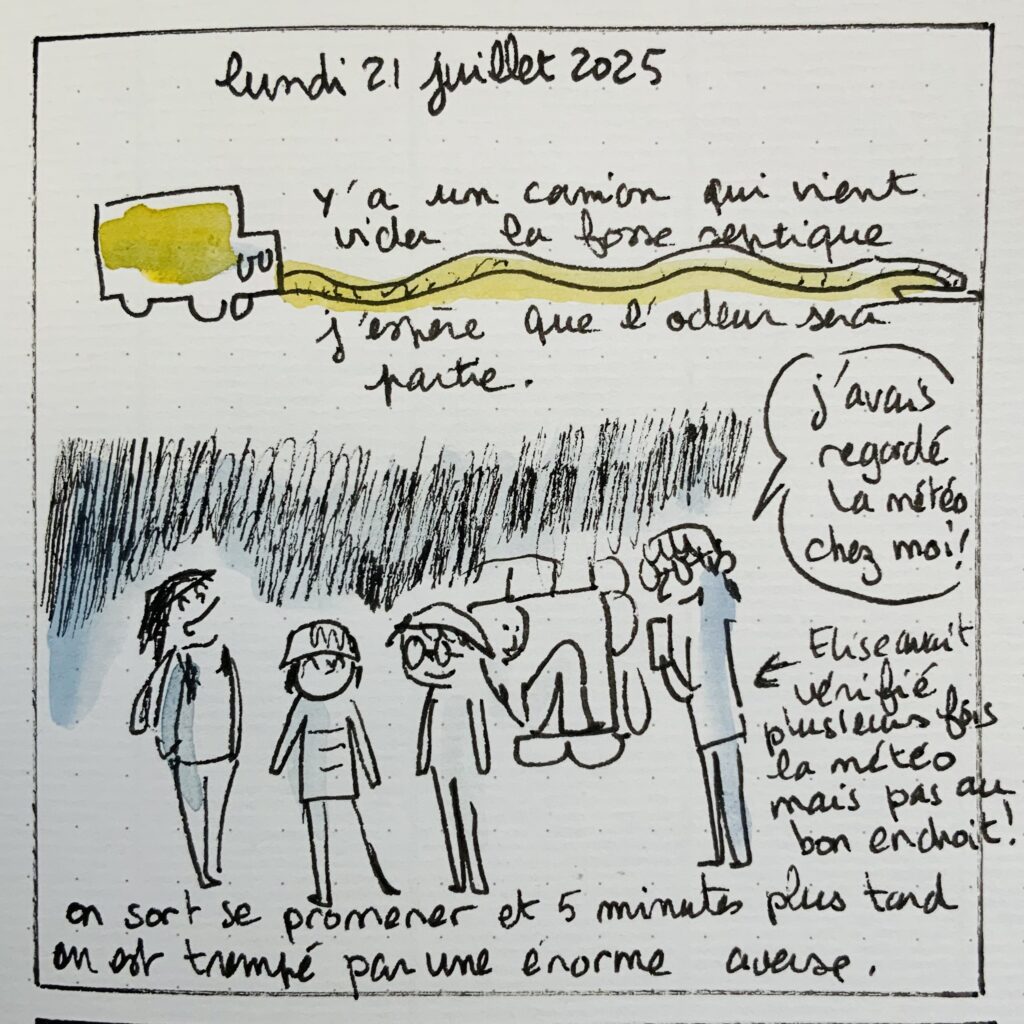 lundi 21 juillet 2025
y'a un camion qui vient
vider la fosse septique
j'espère que l'odeur sera
partie.
j'avais
regardé
la météo
chez moi!
Elise avait
vérifié
plusieurs fois
la météo
mais pas au
bon endroit!
on sort se promener et 5 minutes plus tard
on est trempé par une énorme averse.